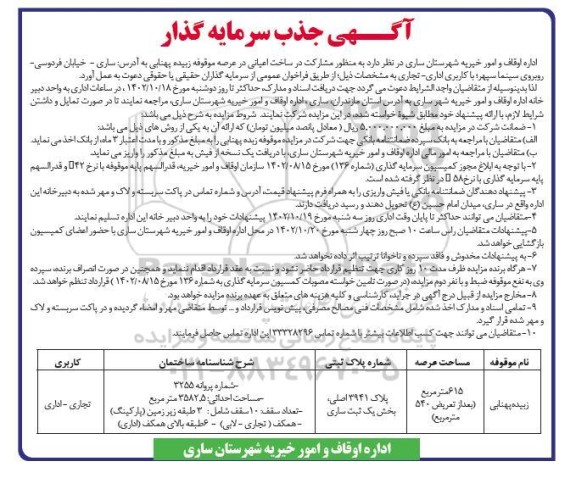 آگهی جذب سرمایه گذار
اداره اوقاف و امور خیریه شهرستان ساری در نظر دارد به منظور مشارکت در ساخت اعیانی در عرصه موقوفه زبیده پهنابی به آدرس: ساری - خیابان فردوسی-
روبروی سینما سپهر؛ با کاربری اداری-تجاری به مشخصات ذیل؛ از طریق فراخوان عمومی از سرمایه گذاران حقیقی یا حقوقی دعوت به عمل آورد.
لذا بدینوسیله از متقاضیان واجد الشرایط دعوت می گردد جهت دریافت اسناد و مدارک، حداکثر تا روز دوشنبه مورخ ۱۴۰۲/۱۰/۱۸، در ساعات اداری به واحد دبیر
خانه اداره اوقاف و امور خیریه شهر ساری به آدرس استان مازندران، ساری، اداره اوقاف و امور خیریه شهرستان ساری، مراجعه نمایند تا در صورت تمایل و داشتن
شرایط لازم، با ارائه پیشنهاد خود مطابق شیوۀ خواسته شده، در این مزایده شرکت نمایند. شروط مزایده به شرح ذیل می باشد:
۱-ضمانت شرکت در مزایده به مبلغ ۵,۰۰۰,۰۰۰,۰۰۰ ریال (معادل پانصد میلیون تومان) که ارائه آن به یکی از روش های ذیل می باشد:
الف) متقاضیان با مراجعه به بانک، سپرده ضمانتنامه بانکی جهت شرکت در مزایده موقوفه زبیده پهنابی را به مبلغ مذکور و با مدت اعتبار ۳ ماه، از بانک اخذ می نماید.
ب) متقاضیان با مراجعه به امور مالی اداره اوقاف و امور خیریه شهرستان ساری، با دریافت یک نسخه از فیش به مبلغ مذکور را واریز می نماید.
۲-با توجه به ابلاغ مجوز کمیسیون سرمایه گذاری (شماره ۱۳۶) مورخ ۱۴۰۲/۰۸/۱۵ سازمان اوقاف و امور خیریه، قدرالسهم پایه موقوفه با نرخ ۴۲٪ و قدرالسهم
پایه سرمایه گذاری با نرخ ۵۸٪ در نظر گرفته شده است.
۳-پیشنهاد دهندگان ضمانتنامه بانکی یا فیش واریزی را به همراه فرم پیشنهاد قیمت، آدرس و شماره تماس در پاکت سربسته و لاک و مهر شده به دبیرخانه این
اداره واقع در ساری، میدان امام حسین (ع) تحویل دهند و رسید دریافت دارند.
۴-متقاضیان می توانند حداکثر تا پایان وقت اداری روز سه شنبه مورخ ۱۴۰۲/۱۰/۱۹ پیشنهادات خود را به واحد دبیر خانه این اداره تسلیم نمایند.
۵-پیشنهادات متقاضیان راس ساعت ۱۰ صبح روز چهار شنبه مورخ ۱۴۰۲/۱۰/۲۰ در محل اداره اوقاف و امور خیریه شهرستان ساری با حضور اعضای کمیسیون
بازگشایی خواهد شد.
۶-به پیشنهادات مخدوش و فاقد سپرده و ناخوانا ترتیب اثر داده نخواهد شد.
۷-هرگاه برنده مزایده ظرف مدت ۱۰ روز کاری جهت تنظیم قرارداد حاضر نشود و نسبت به عقد قرارداد اقدام ننماید و همچنین در صورت انصراف برنده، سپرده
وی به نفع موقوفه ضبط و با نفر دوم مزایده، (در صورت تامین خواسته مصوبات کمیسیون سرمایه گذاری به شماره ۱۳۶ مورخ ۱۴۰۲/۰۸/۱۵) قرارداد تنظیم خواهد شد.
۸-مخارج مزایده از قبیل درج آگهی در جراید، کارشناسی و کلیه هزینه های متعلق به عهده برنده مزایده خواهد بود.
۹-تمامی اسناد و مدارک اخذ شده شامل مشخصات فنی مصالح مصرفی، پیش نویس قرارداد و... توسط متقاضی مهر و امضاء گردیده و در پاکت سربسته و لاک
و مهر شده قرار گیرد.
۱۰-متقاضیان می توانند جهت کسب اطلاعات بیشتر با شماره تماس ۳۳۳۲۸۲۹۶ این اداره تماس حاصل فرمایند.
نام موقوفه مساحت عرصه شماره پلاک ثبتی شرح شناسنامه ساختمان کاربری
زبیده پهنابی ۶۱۵ مترمربع (بعد از تعریض ۵۴۰ مترمربع) پلاک ۳۹۴۱ اصلی، بخش یک ثبت ساری -شماره پروانه ۳۲۵۵ تجاری -اداری
-مساحت احداثی: ۳۵۸۲,۵ متر مربع
-تعداد سقف ۱۰ سقف شامل: ۳ طبقه زیر زمین (پارکینگ)
-همکف (تجاری - لابی) - ۶ طبقه بالای همکف (اداری)
اداره اوقاف و امور خیریه شهرستان ساری